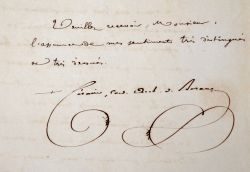 Veuillez recevoir, Monsieur,
l'assurance de mes sentiments très distingués
et très dévoués.
+ card.